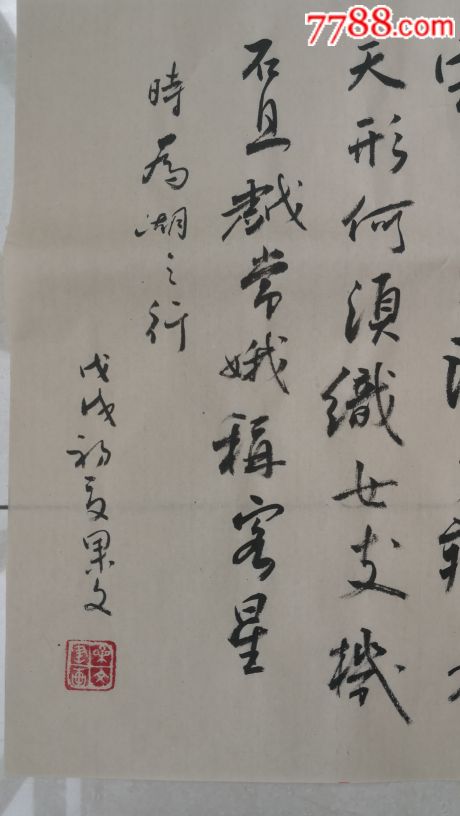 7788.com
天形何須織女支機
石且戲常娥稱客星
時為湖之行
戊戌初夏果文
果文書画